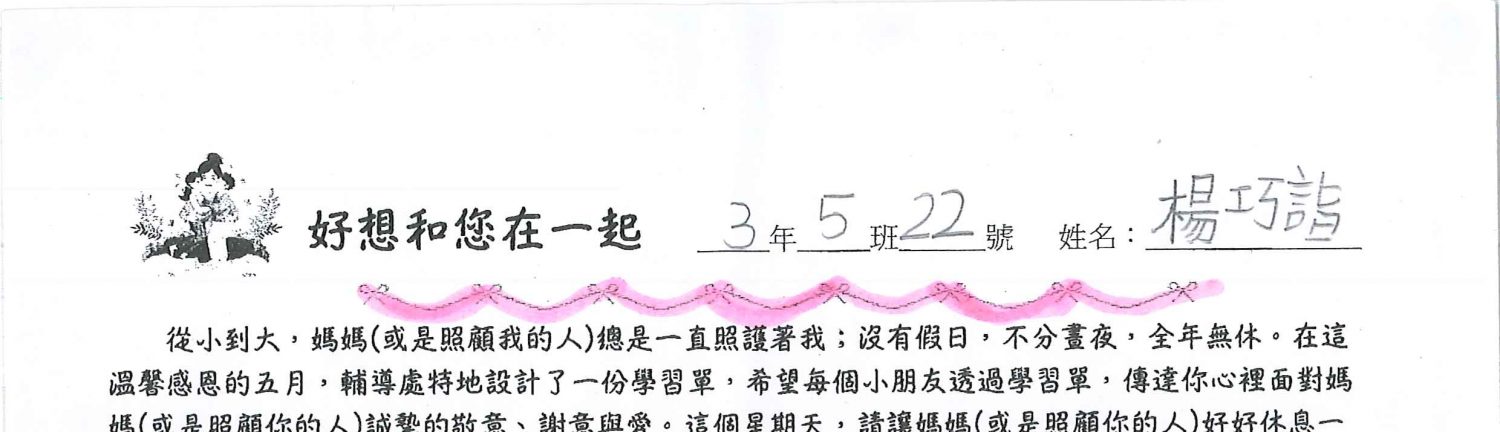 好想和您在一起 3年5班22號 姓名：楊巧詣
從小到大，媽媽(或是照顧我的人)總是一直照護著我；沒有假日，不分晝夜，全年無休。在這
溫馨感恩的五月，輔導處特地設計了一份學習單，希望每個小朋友透過學習單，傳達你心裡面對媽
媽(或是照顧你的人)誠摯的敬意、謝意與愛。這個星期天，請讓媽媽(或是照顧你的人)好好休息一